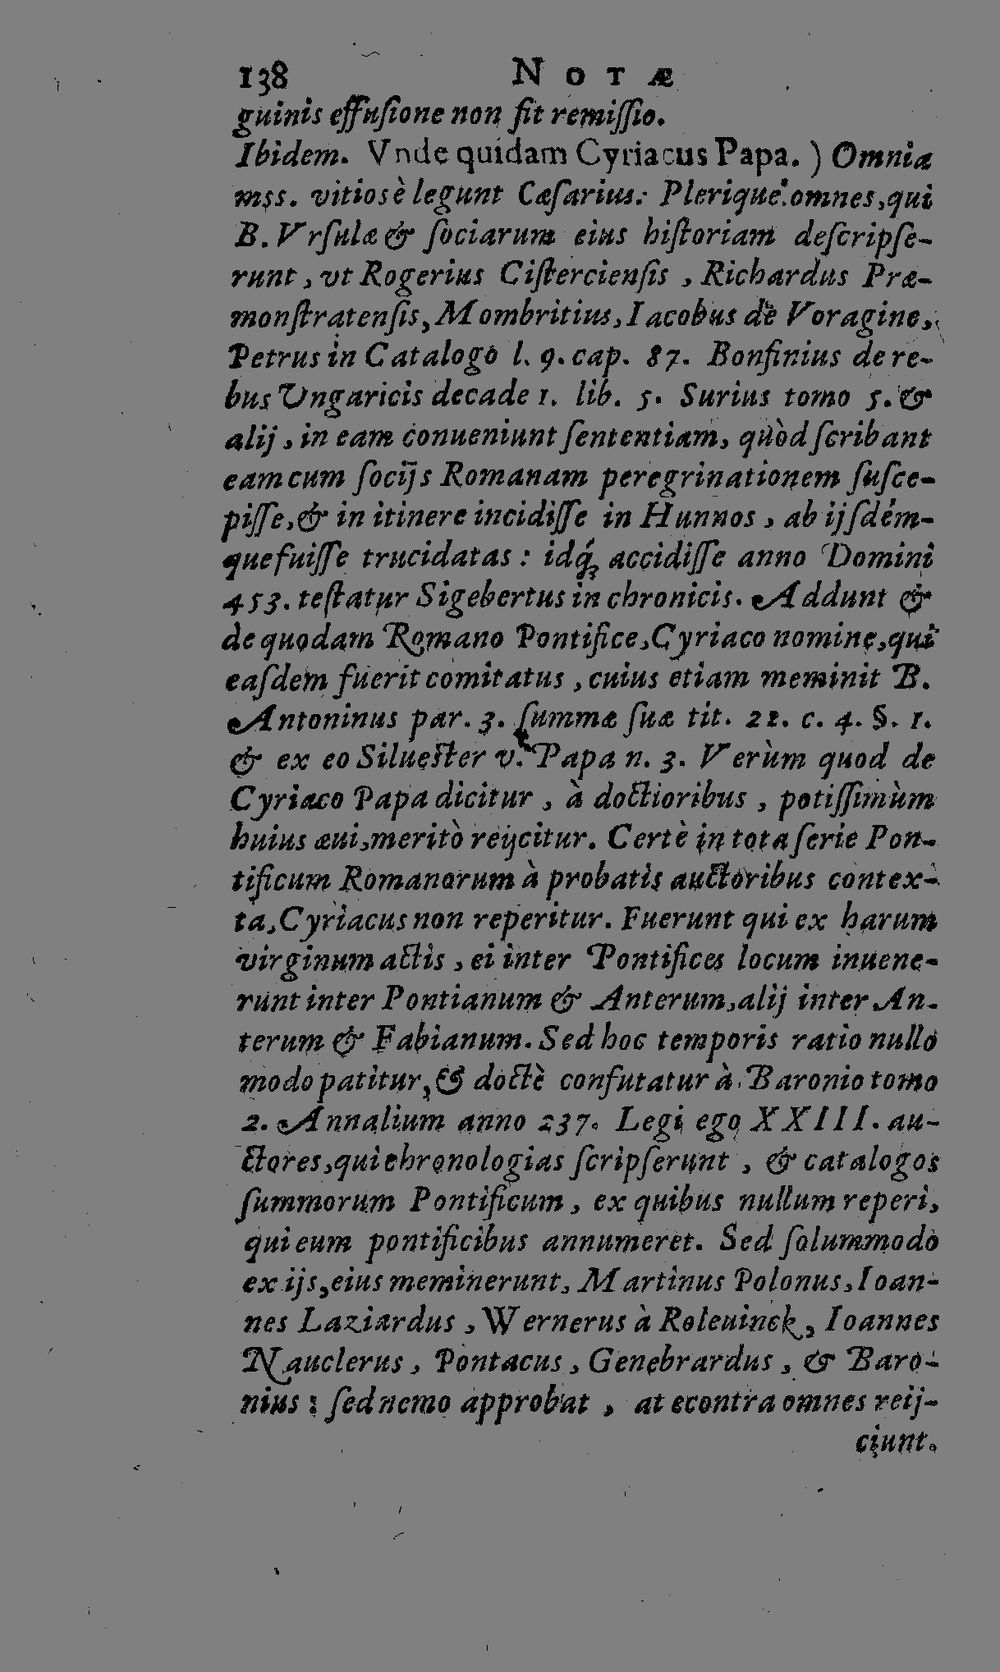 138 NOTÆ
guinis effusione non fit remissio.
Ibidem. Vnde quidam Cyriacus Papa.) Omnia
mss. vitiosè legunt Cæsarius: Plerique omnes, qui
B. Vrsulæ & sociarum eius historiam descripse-
runt, vt Rogerius Cisterciensis, Richardus Præ-
monstratensis, Mombritius, Iacobus de Voragine,
Petrus in Catalogo l. 9. cap. 87. Bonfinius de re-
bus Vngaricis decade 1. lib. 5. Surius tomo 5. &
alij, in eam conueniunt sententiam, quòd scribant
eam cum socijs Romanam peregrinationem susce-
pisse, & in itinere incidisse in Hunnos, ab ijsdém-
que fuisse trucidatas: idq́; accidisse anno Domini
453. testatur Sigebertus in chronicis. Addunt &
de quodam Romano Pontifice, Cyriaco nomine, qui
easdem fuerit comitatus, cuius etiam meminit B.
Antoninus par. 3. summæ suæ tit. 21. c. 4. §. 1.
& ex eo Siluester v. Papa n. 3. Verùm quod de
Cyriaco Papa dicitur, à doctioribus, potissimùm
huius æui, meritò reijcitur. Certè in tota serie Pon-
tificum Romanorum à probatis auctoribus contex-
ta, Cyriacus non reperitur. Fuerunt qui ex harum
virginum actis, ei inter Pontifices locum inuene-
runt inter Pontianum & Anterum, alij inter An-
terum & Fabianum. Sed hoc temporis ratio nullo
modo patitur, & doctè confutatur à Baronio tomo
2. Annalium anno 237. Legi ego XXIII. au-
ctores, qui chronologias scripserunt, & catalogos
summorum Pontificum, ex quibus nullum reperi,
qui eum pontificibus annumeret. Sed solummodo
ex ijs, eius meminerunt, Martinus Polonus, Ioan-
nes Laziardus, Wernerus à Roleuinck, Ioannes
Nauclerus, Pontacus, Genebrardus, & Baro-
nius: sed nemo approbat, at econtra omnes reij-
ciunt.